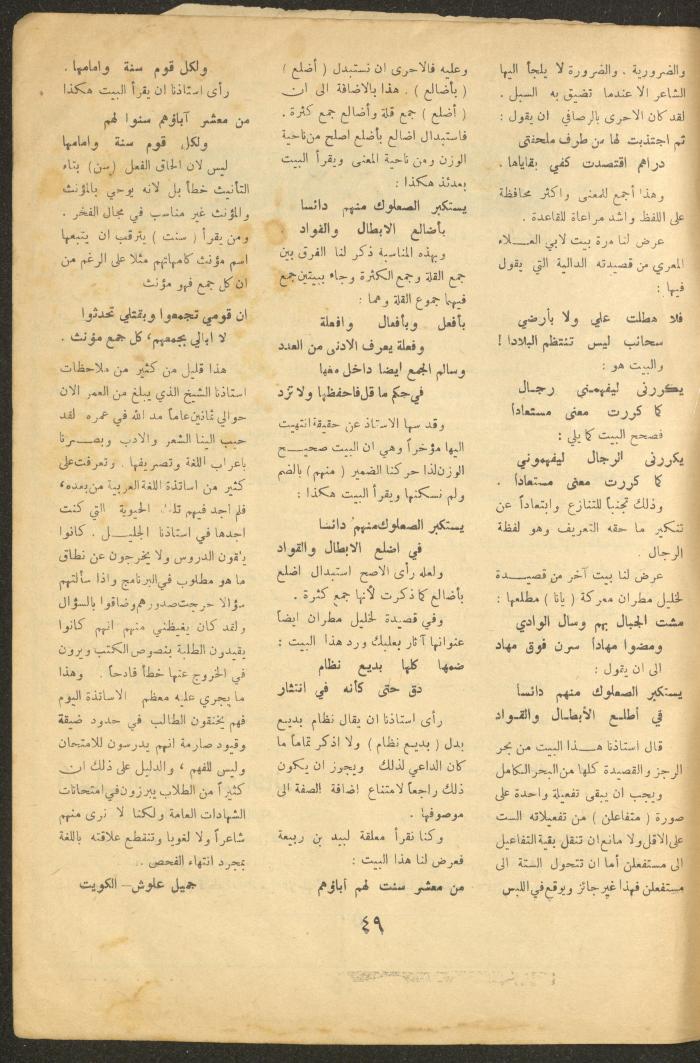 والضرورية . والضرورة لا يلجأ اليها
الشاعر الا عندما تضيق به السبل .
لقد كان الاحرى بالرصافي ان يقول :
ثم اجتذبت لها من طرف ملحفتي
دراهم اقتصدت كفي بقاياها .
وهذا أجمع للمعنى واكثر محافظة
على اللفظ واشد مراعاة للقاعدة .
عرض لنا مرة بيت لابي العلاء
المعري من قصيدته الدالية التي يقول
فيها :
فلا هطلت علي ولا بأرضي
سحائب ليس تنتظم البلادا !
والبيت هو :
يكررني ليفهمني رجال
كما كررت معنى مستعاداً
فصحح البيت كما يلي :
يكررني الرجال ليفهموني
كما كررت معنى مستعاداً .
وذلك تجنباً للتنازع وابتعاداً عن
تنكير ما حقه التعريف وهو لفظة
الرجال
عرض لنا بيت آخر من قصيدة
لخليل مطران معركة ( يانا ) مطلعها :
مشت الجبال بهم وسال الوادي
ومضوا مهاداً سرن فوق مهاد
الى ان يقول :
يستكبر الصعلوك منهم دائسا
في أطلع الأبطال والقواد
قال استاذنا هذا البيت من بحر
الرجز والقصيدة كلها من البحر الكامل
ويجب ان يبقى تفعيلة واحدة على
صورة ( متفاعلن ) من تفعيلاته الست
على الاقل ولا مانع ان تنقل بقية التفاعيل
الى مستفعلن أما ان تتحول الستة الى
مستفعلن فهذا غير جائز ويوقع في اللبس
وعليه فالاحرى ان نستبدل ( أضلع )
( بأضالع ) . هذا بالاضافة الى ان
( أضلع ) جمع قلة وأضالع جمع كثرة .
فاستبدال اضالع بأضلع اصلح من ناحية
الوزن ومن ناحية المعنى ويقرأ البيت
بعدئذ هكذا :
يستكبر الصعلوك منهم دائسا
بأضالع الابطال والقواد .
وبهذه المناسبة ذكر لنا الفرق بين
جمع القلة وجمع الكثرة وجاء ببيتين جمع
فيهما جموع القلة وهما :
بأفعل وبأفعال وافعلة
وفعلة يعرف الادنى من العدد
وسالم الجمع ايضا داخل معها
في حكم ما قل فاحفظها ولا تزد
وقد سها الاستاذ عن حقيقة انتهيت
اليها مؤخراً وهي ان البيت صحيح
الوزن لذا حركنا الضمير ( منهم ) بالضم
ولم نسكنها ويقرأ البيت هكذا :
يستكبر الصعلوك منهم دائسا
في اضلع الابطال والقواد
ولعله رأى الاصح استبدال اضلع
بأضالع كما ذكرت لأنها جمع كثرة .
وفي قصيدة لخليل مطران ايضاً
عنوانها آثار بعلبك ورد هذا البيت :
ضمها كلها بديع نظام
دق حتى كأنه في انتثار
رأى استاذنا ان يقال نظام بديع
بدل ( بديع نظام ) ولا اذكر تماماً ما
كان الداعي لذلك ويجوز ان يكون
ذلك راجعاً لامتناع اضافة الصفة الى
موصوفها .
وكنا نقرأ معلقة لبيد بن ربيعة
فعرض لنا هذا البيت :
من معشر سنت لهم أباؤهم
ولكل قوم سنة وامامها .
رأى استاذنا ان يقرأ البيت هكذا
من معشر آباؤهم سنوا لهم
ولكل قوم سنة وامامها
ليس لان الحاق الفعل (سن) بتاء
التأنيث خطأ بل لانه يوحي بالمؤنث
والمؤنث غير مناسب في مجال الفخر .
ومن يقرأ ( سنت ) يترقب ان يتبعها
اسم مؤنث كامهاتهم مثلا على الرغم من
ان كل جمع فهو مؤنث
ان قومي تجمعوا وبقتلي تحدثوا
لا ابالي بجمعهم، كل جمع مؤنث .
هذا قليل من كثير من ملاحظات
استاذنا الشيخ الذي يبلغ من العمر الان
حوالي ثمانين عاماً مد الله في عمره لقد
حبب الينا الشعر والادب وبصرنا
باعراب اللغة وتصريفها . وتعرفت على
كثير من اساتذة اللغة العربية من بعده،
فلم اجد فيهم تلك الحيوية التي كنت
اجدها في استاذنا الجليل . كانوا
يلقون الدروس ولا يخرجون عن نطاق
ما هو مطلوب في البرنامج واذا سألتهم
سؤالا حرجت صدورهم وضاقوا بالسؤال
ولقد كان يغيظني منهم انهم كانوا
يقيدون الطلبة بنصوص الكتب ويرون
في الخروج عنها خطأ فادحاً . وهذا
ما يجري عليه معظم الاساتذة اليوم
فهم يخنقون الطالب في حدود ضيقة
وقيود صارمة انهم يدرسون للامتحان
وليس للفهم ، والدليل على ذلك ان
كثيراً من الطلاب يبرزون في امتحانات
الشهادات العامة ولكنا لا نرى منهم
شاعراً ولا لغويا وتنقطع علاقته باللغة
بمجرد انتهاء الفحص ..
جميل علوش – الكويت
٤٩